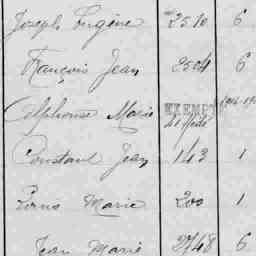 Joseph Eugène 2510 6
François Jean 2504 6
Alphonse Marie EXEMPT
Constant Jean 143 1
Pierre Marie 200 1
Jean Marie 2748 6